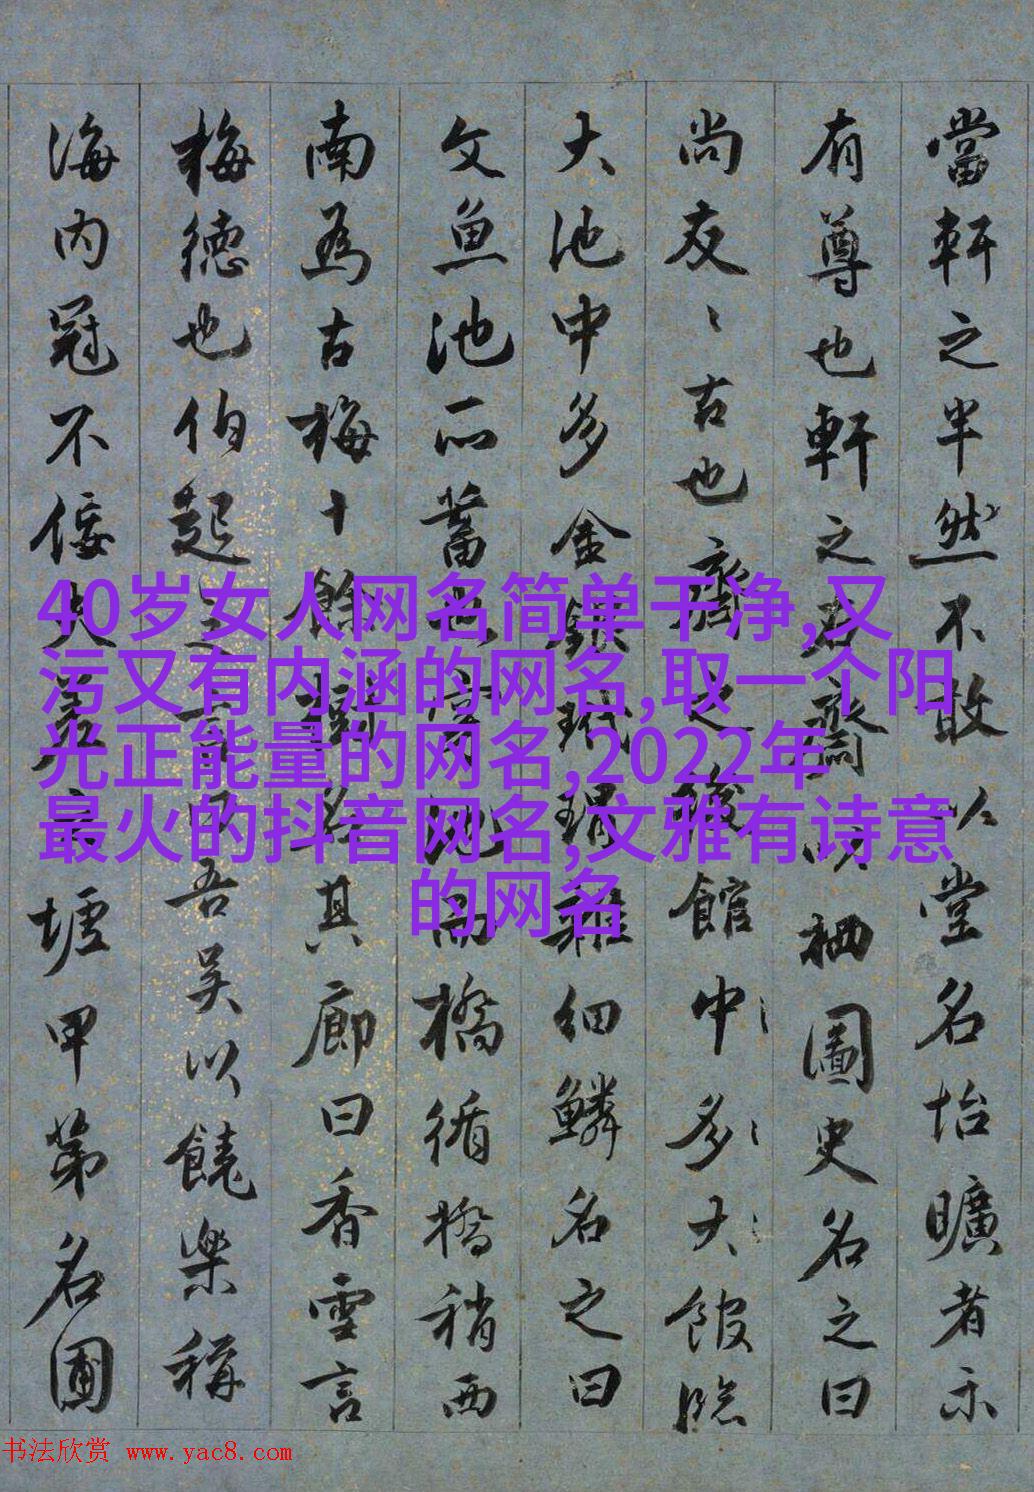 當軒之半然不敢以堂名怡曠者示
有尊也軒之右齋以栖圖史名之曰
尚友〻古也齋之後館中多大館臨
大池中多金銀玳瑁雜細鱗名之曰
文魚池所蓄也池而橋循橋稍西
南為古梅十餘樹名其廊曰香雪言
梅德也伯起言曰吾吳以饒樂稱
海內冠不佞塘甲第名圃
40岁女人网名简单干净,又
污又有内涵的网名,取一个阳
光正能量的网名,2022年
最火的抖音网名,文雅有诗意
的网名
书法欣赏 www.yac8.com